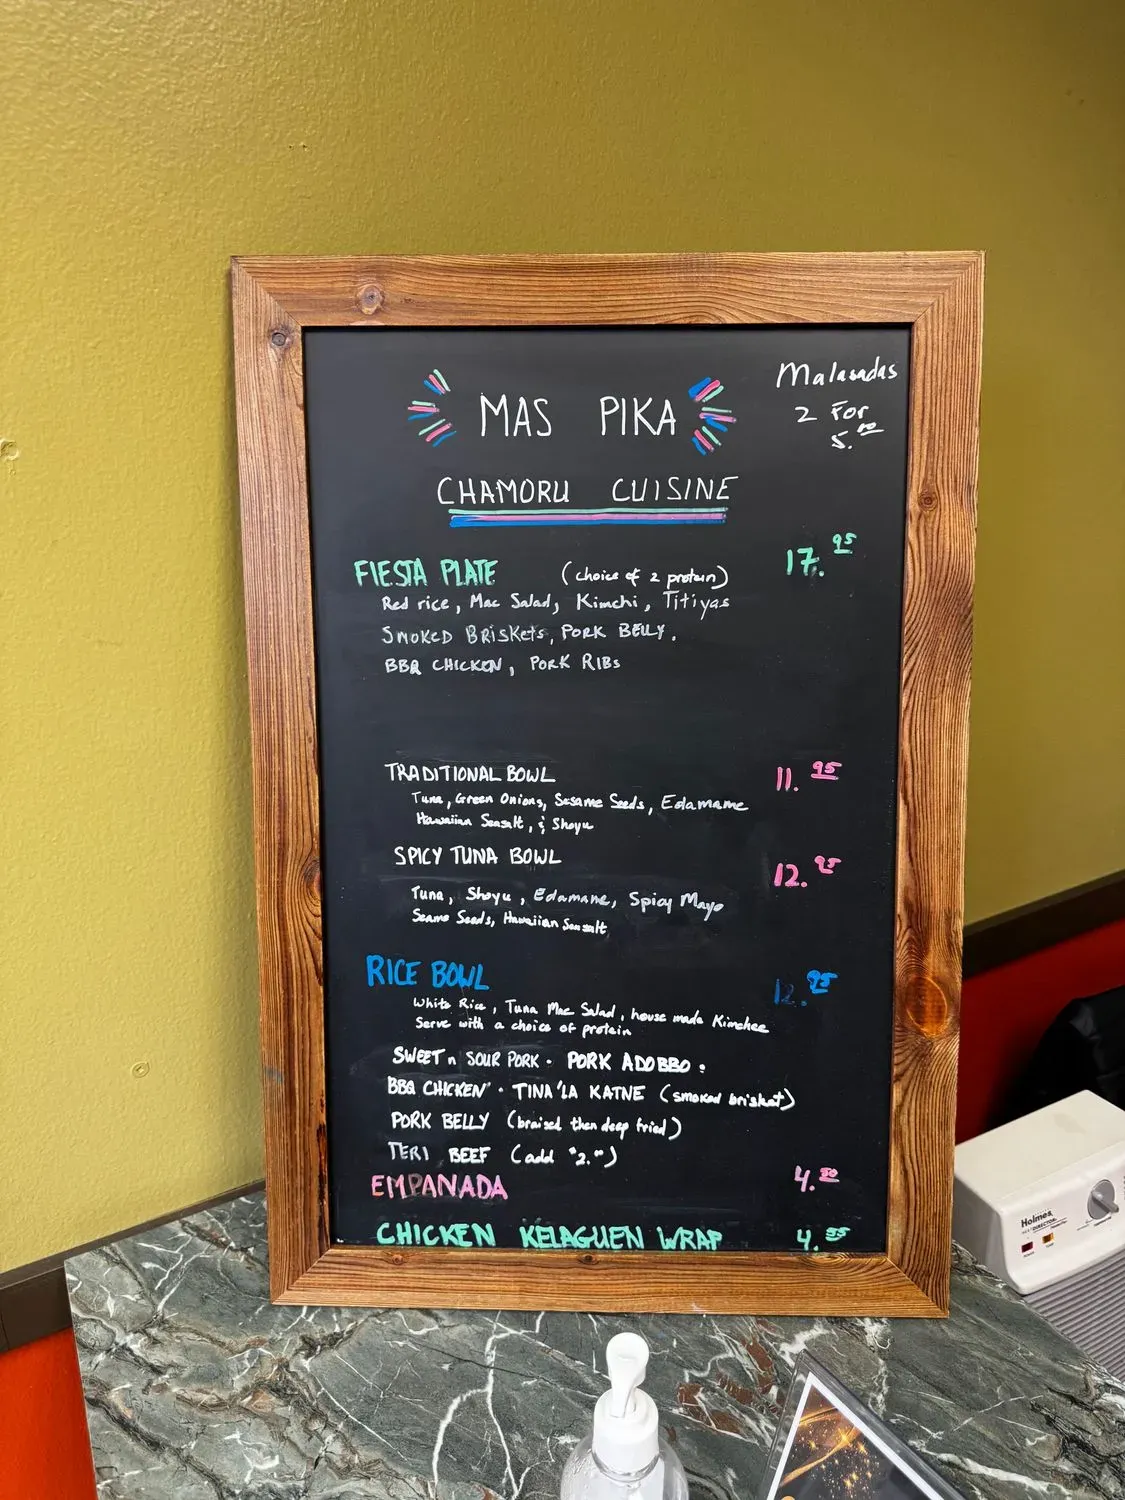 MAS PIKA
Malasadas
2 For
5.00
CHAMORU CUISINE
FIESTA PLATE (choice of 2 protein) 17.95
Red rice, Mac Salad, Kimchi, Titiyas
SMOKED BRISKETS, PORK BELLY.
BBQ CHICKEN, PORK RIBS
TRADITIONAL BOWL 11.95
Tuna, Green Onions, Sesame Seeds, Edamame
Hawaiian Seasalt, & Shoyu
SPICY TUNA BOWL 12.95
Tuna, Shoyu, Edamame, Spicy Mayo
Seame Seeds, Hawaiian Seasalt
RICE BOWL 12.95
White Rice, Tuna Mac Salad, house made Kimchee
Serve with a choice of protein
SWEET n SOUR PORK · PORK ADOBBO ·
BBQ CHICKEN · TINA'LA KATNE (smoked brisket)
PORK BELLY (braised then deep fried)
TERI BEEF (add "2.00)
EMPANADA 4.50
CHICKEN KELAGUEN WRAP 4.55
Holmes